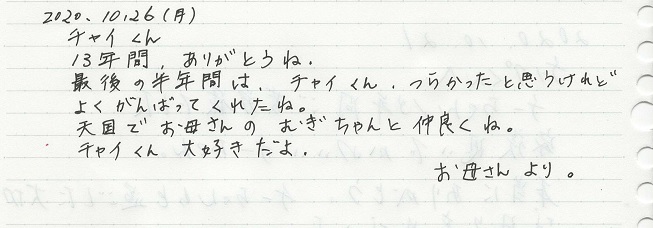 2020.10.26(月)
チャイくん
13年間、ありがとうね.
最後の半年間は、チャイくん、つらかったと思うけれど
よくがんばってくれたね。
天国でお母さんのむぎちゃんと仲良くね。
チャイくん大好きだよ.
お母さんより。